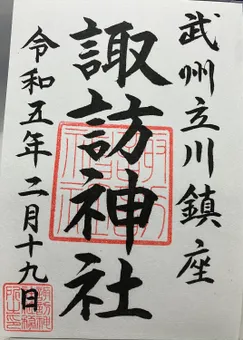 武州立川鎮座
諏訪神社
令和五年二月十九日